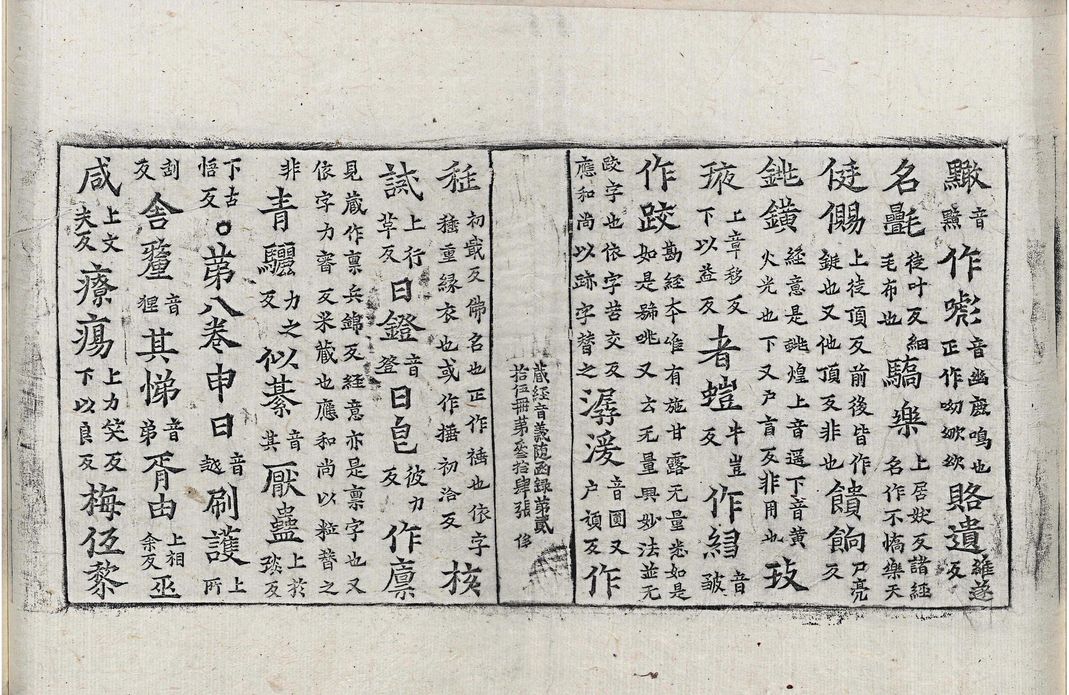 黰音黰作嘭音幽鹿鳴也正作呦欨欨賂遺雖遂反
名㲲徒叶反細毛布也驕樂上居妖反諸經名作不憍樂天
侹傷上徒頂反前後皆作鋌也又他頂反非也饋餉尸亮反
銚鐄經意是誂煌上音遥下音黄火光也下又戶盲反非用也玫
㻠上章移反下以益反者螘牛豈反作皺音皱
作跤勘經夲唯有施甘露无量悲如是如是號咷又云无量興妙法並无
跤字也依字苦交反應和尚以跡字替之潺湲音圓又戶頑反作
藏經音義隨函録第貳拾伍冊第叄拾肆張
䅳初戢反佛名也正作䅳也依字種重縁衣也或作插初洽反核
試上行草反曰鐙音登曰皀彼力反作廩
見蔵作禀兵錦反経意亦是禀字也又依字力審反米蔵也應和尚以粒替之
非青驪力之反似綦音其厭蠱上於琰反
下古悟反。第八卷申曰音越刷護上所
刮反舎氂音狸其悌音弟胥由上相余反巫
咸上文夫反療瘍上力笑反下以良反梅伍黎